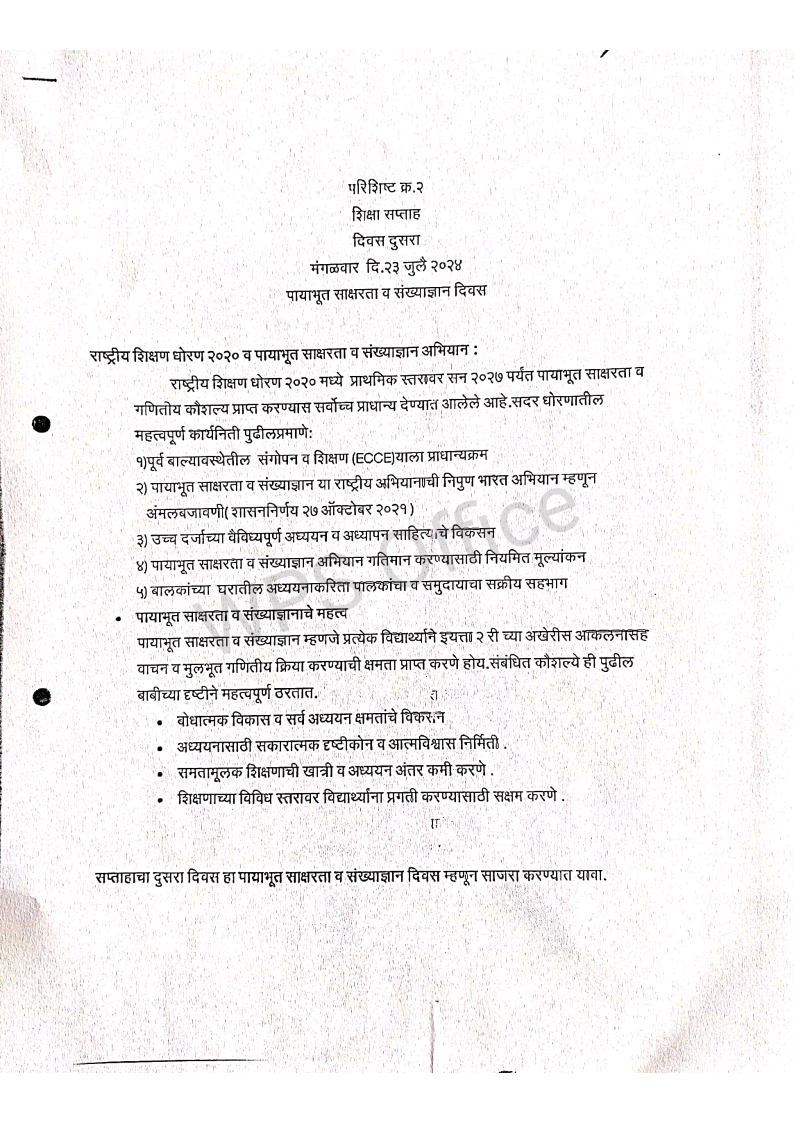 परिशिष्ट क्र.२
शिक्षा सप्ताह
दिवस दुसरा
मंगळवार दि.२३ जुलै २०२४
पायाभूत साक्षरता व संख्याज्ञान दिवस
राष्ट्रीय शिक्षण धोरण २०२० व पायाभूत साक्षरता व संख्याज्ञान अभियान :
राष्ट्रीय शिक्षण धोरण २०२० मध्ये प्राथमिक स्तरावर सन २०२७ पर्यंत पायाभूत साक्षरता व
गणितीय कौशल्य प्राप्त करण्यास सर्वोच्च प्राधान्य देण्यात आलेले आहे.सदर धोरणातील
महत्वपूर्ण कार्यनिती पुढीलप्रमाणे:
१)पूर्व बाल्यावस्थेतील संगोपन व शिक्षण (ECCE)याला प्राधान्यक्रम
२) पायाभूत साक्षरता व संख्याज्ञान या राष्ट्रीय अभियानाची निपुण भारत अभियान म्हणून
अंमलबजावणी( शासननिर्णय २७ ऑक्टोबर २०२१)
३) उच्च दर्जाच्या वैविध्यपूर्ण अध्ययन व अध्यापन साहित्याचे विकसन
४) पायाभूत साक्षरता व संख्याज्ञान अभियान गतिमान करण्यासाठी नियमित मूल्यांकन
५) बालकांच्या घरातील अध्ययनाकरिता पालकांचा व समुदायाचा सक्रीय सहभाग
• पायाभूत साक्षरता व संख्याज्ञानाचे महत्व
पायाभूत साक्षरता व संख्याज्ञान म्हणजे प्रत्येक विद्यार्थ्याने इयत्ता २ री च्या अखेरीस आकलनासह
वाचन व मुलभूत गणितीय क्रिया करण्याची क्षमता प्राप्त करणे होय.संबंधित कौशल्ये ही पुढील
बाबीच्या दृष्टीने महत्वपूर्ण ठरतात.
• बोधात्मक विकास व सर्व अध्ययन क्षमतांचे विकसन
• अध्ययनासाठी सकारात्मक दृष्टीकोन व आत्मविश्वास निर्मिती .
• समतामूलक शिक्षणाची खात्री व अध्ययन अंतर कमी करणे .
• शिक्षणाच्या विविध स्तरावर विद्यार्थ्यांना प्रगती करण्यासाठी सक्षम करणे .
सप्ताहाचा दुसरा दिवस हा पायाभूत साक्षरता व संख्याज्ञान दिवस म्हणून साजरा करण्यात यावा.
WPS Office